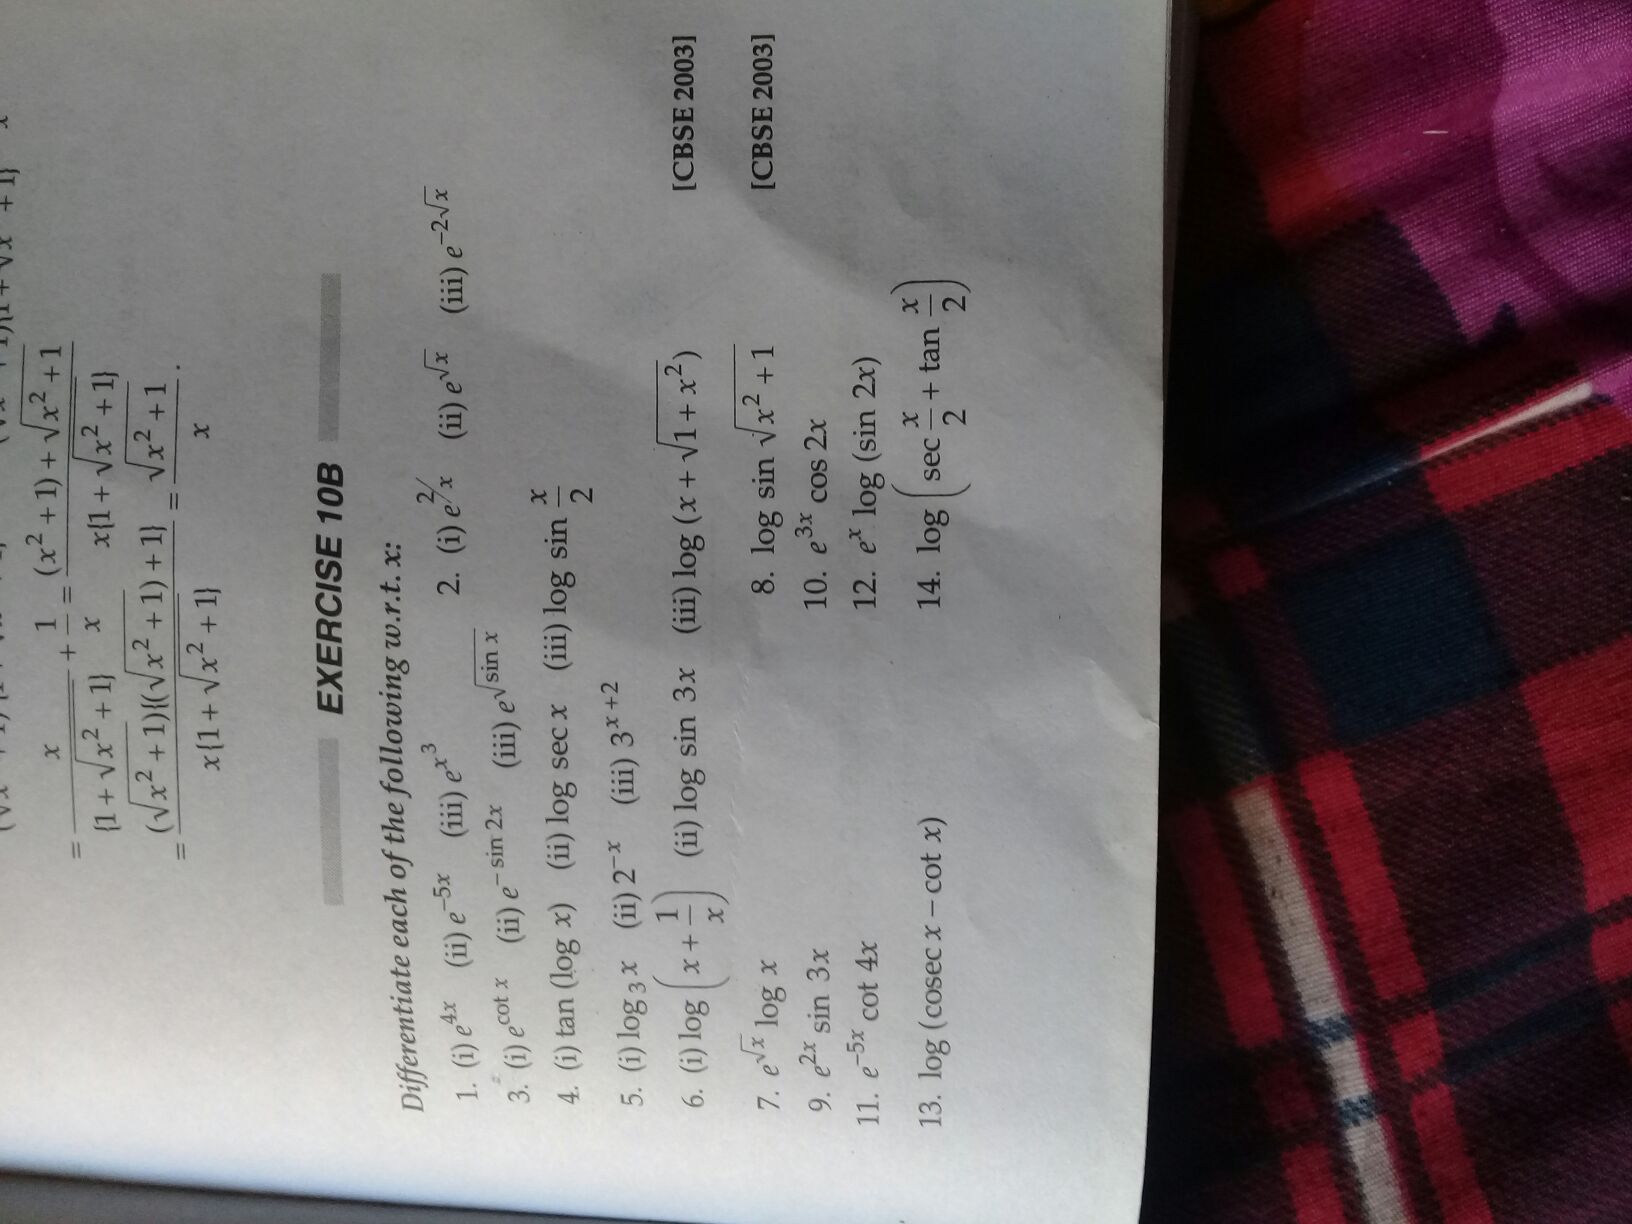 = x/{1+√x²+1} + 1/x = (x²+1)+√x²+1 / x{1+√x²+1}
= (√x²+1){(√x²+1)+1} / x{1+√x²+1} = √x²+1 / x .
EXERCISE 10B
Differentiate each of the following w.r.t. x:
1. (i) e^{4x} (ii) e^{-5x} (iii) e^{x³} 2. (i) e^{2/x} (ii) e^{√x} (iii) e^{-2√x}
3. (i) e^{cot x} (ii) e^{-sin 2x} (iii) e^{√sin x}
4. (i) tan (log x) (ii) log sec x (iii) log sin x/2
5. (i) log₃ x (ii) 2^{-x} (iii) 3^{x+2}
6. (i) log (x + 1/x) (ii) log sin 3x (iii) log (x + √1 + x²) [CBSE 2003]
7. e^{√x} log x 8. log sin √x² + 1 [CBSE 2003]
9. e^{2x} sin 3x 10. e^{3x} cos 2x
11. e^{-5x} cot 4x 12. e^x log (sin 2x)
13. log (cosec x – cot x) 14. log (sec x/2 + tan x/2)